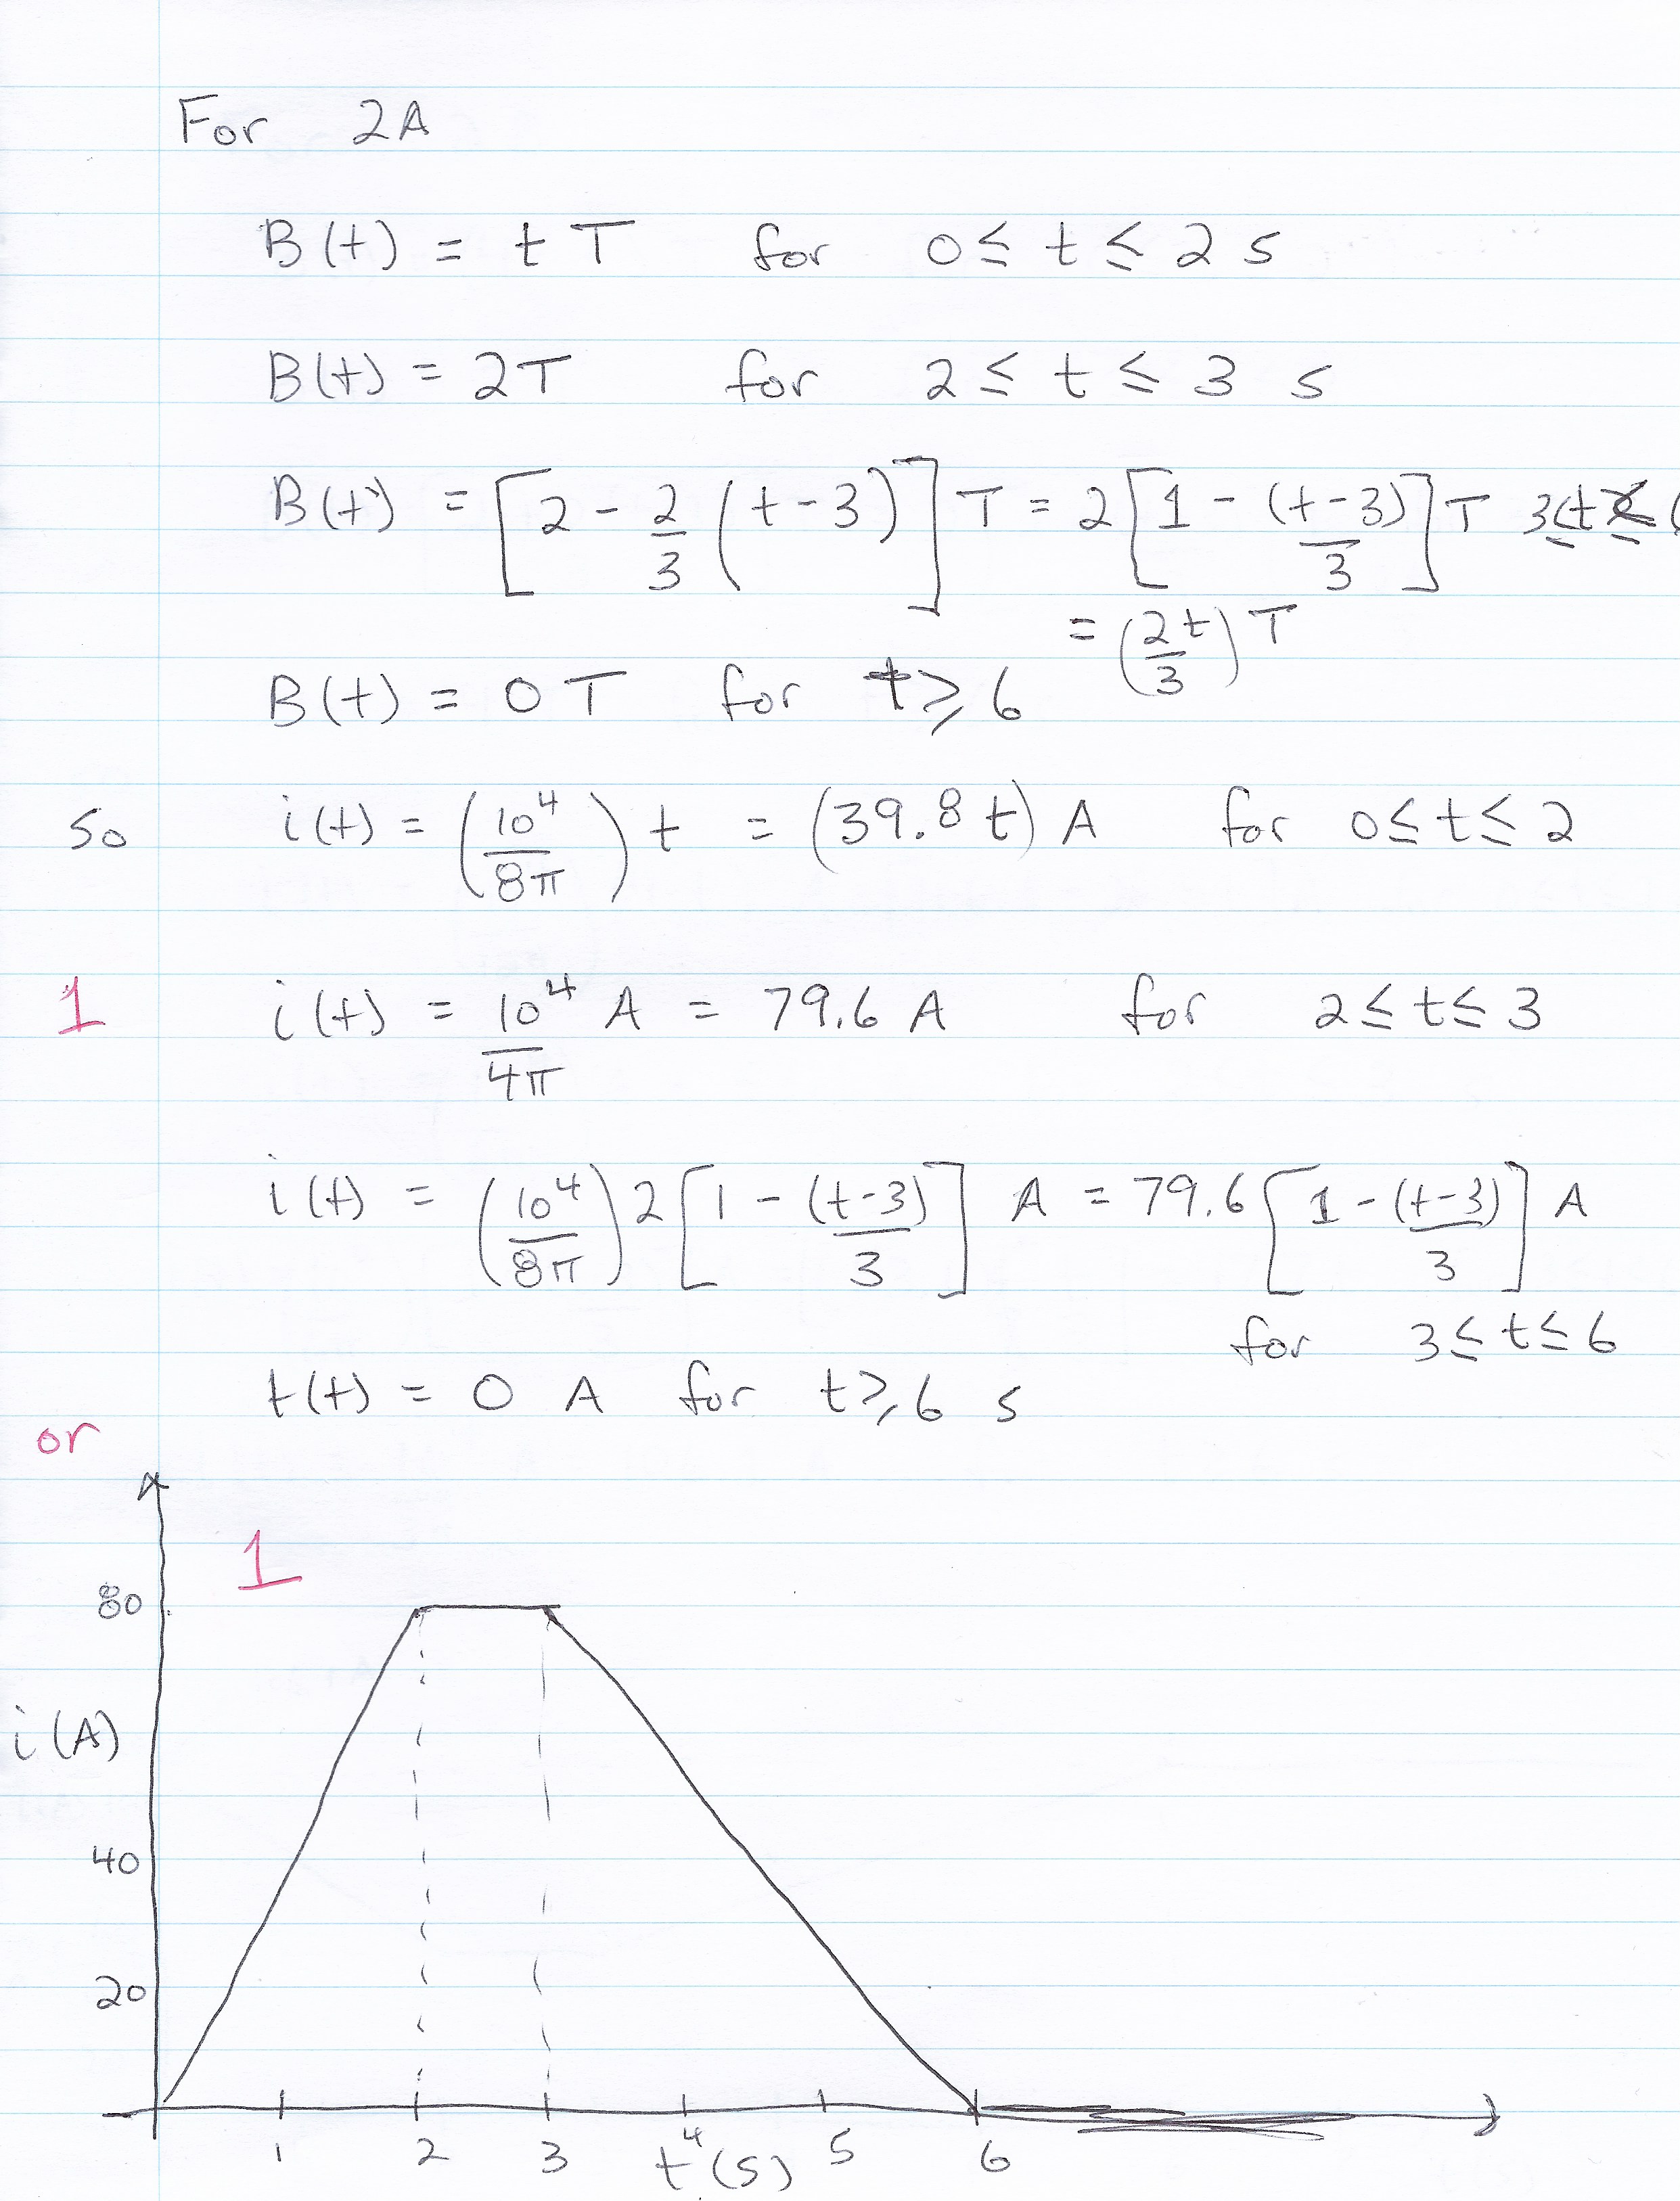 For 2A
B(t) = t T for 0 ≤ t ≤ 2 s
B(t) = 2T for 2 ≤ t ≤ 3 s
B(t) = [2 - 2/3 (t-3)] T = 2[1 - (t-3)/3] T 3 ≤ t ≤
= (2t/3) T
B(t) = 0 T for t ≥ 6
so i(t) = (10⁴/8π) t = (39.8 t) A for 0 ≤ t ≤ 2
1 i(t) = 10⁴/4π A = 79.6 A for 2 ≤ t ≤ 3
i(t) = (10⁴/8π) 2 [1 - (t-3)/3] A = 79.6 [1 - (t-3)/3] A
for 3 ≤ t ≤ 6
t(t) = 0 A for t ≥ 6 s
or
1
80
i (A)
40
20
1 2 3 4 5 6
t (s)